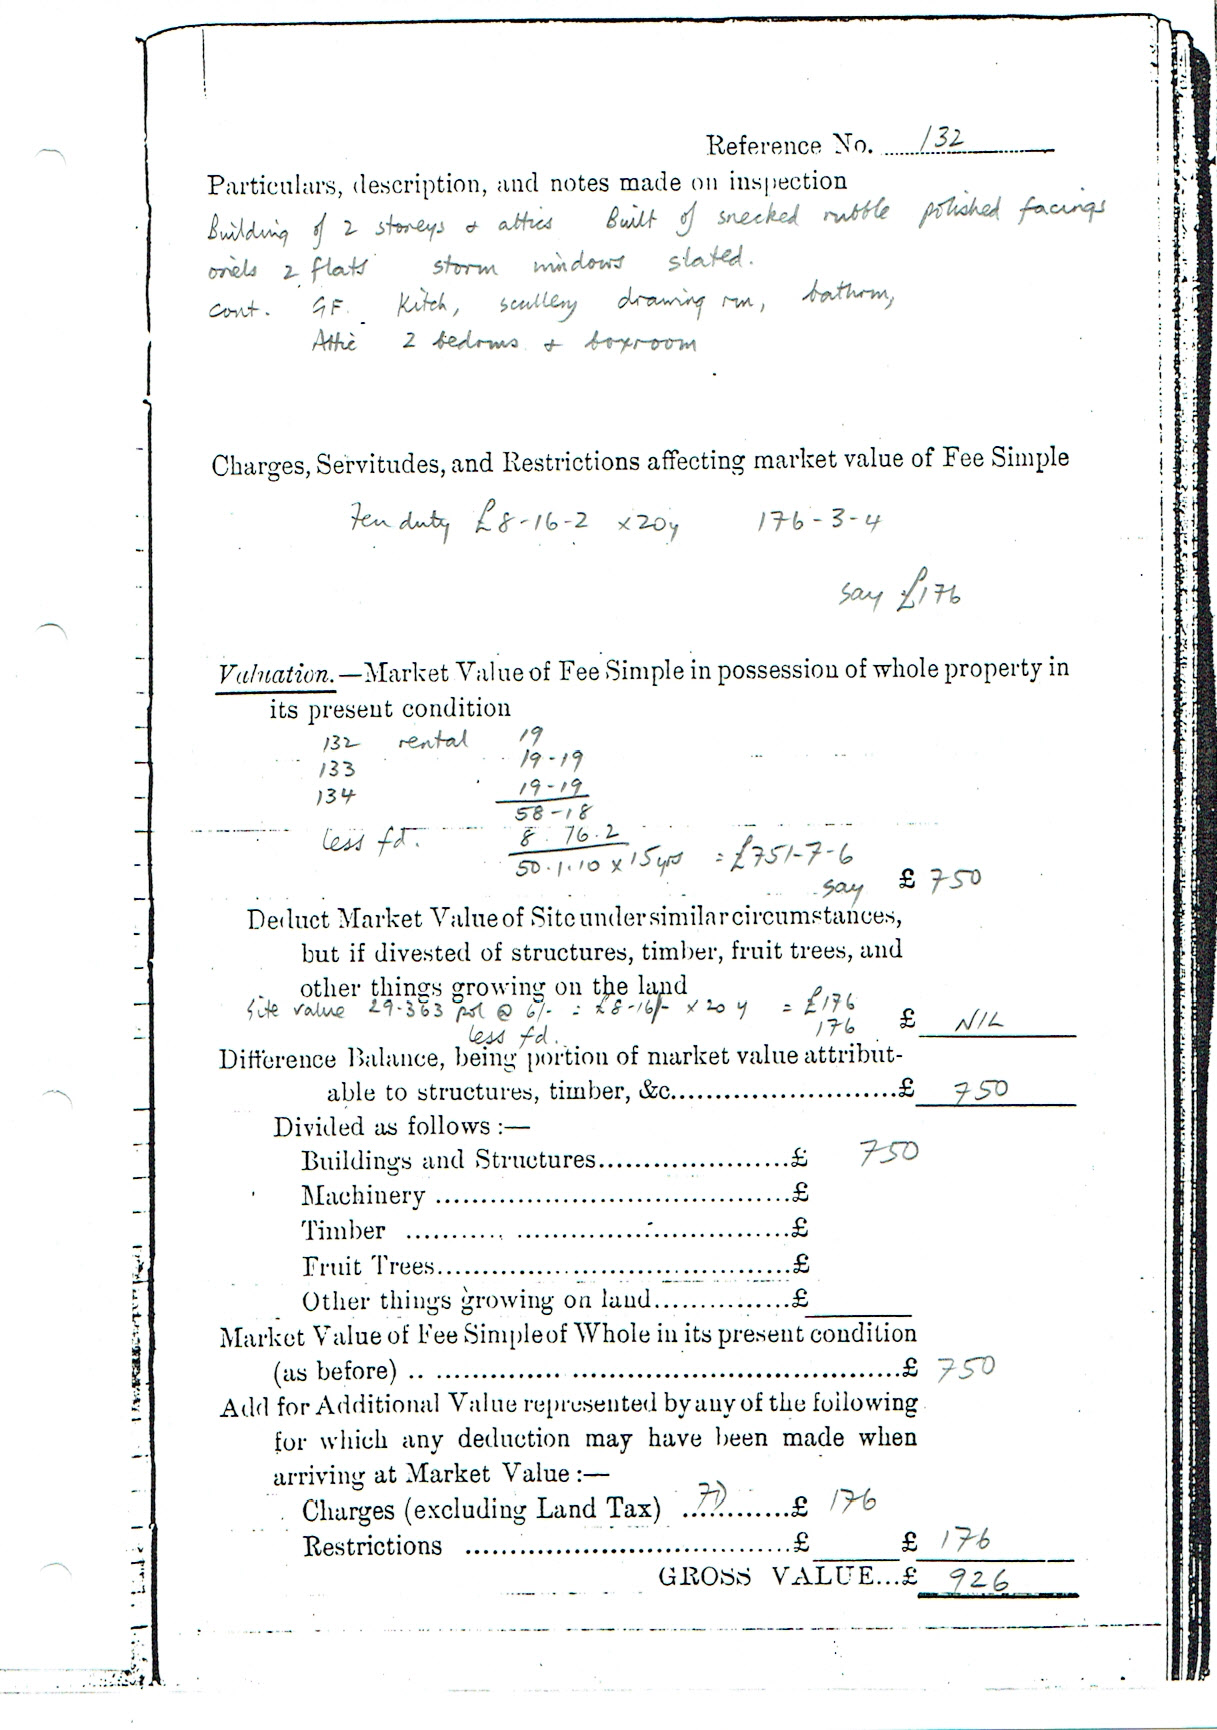 Reference No. 132
Particulars, description, and notes made on inspection
Building of 2 storeys & attics Built of snecked rubble polished facings
oriels 2 flats storm windows slated.
cont. GF. Kitch, scullery drawing rm, bathrm,
Attic 2 bedrms & boxroom
Charges, Servitudes, and Restrictions affecting market value of Fee Simple
Feu duty £8-16-2 x20y 176-3-4
say £176
Valuation.—Market Value of Fee Simple in possession of whole property in
its present condition
132 rental 19
133 19-19
134 19-19
58-18
less fd. 8.76.2
50.1.10 x 15yrs = £751-7-6
say £750
Deduct Market Value of Site under similar circumstances,
but if divested of structures, timber, fruit trees, and
other things growing on the land
Site value 29.363 pol @ 6/- = £8-16/- x 20 y = £176
less fd. 176 £ NIL
Difference Balance, being portion of market value attribut-
able to structures, timber, &c.........................£ 750
Divided as follows :—
Buildings and Structures......................£ 750
Machinery .....................................£
Timber .....................................£
Fruit Trees.....................................£
Other things growing on land...............£
Market Value of Fee Simple of Whole in its present condition
(as before) .....................................................£ 750
Add for Additional Value represented by any of the following
for which any deduction may have been made when
arriving at Market Value :—
Charges (excluding Land Tax) ............£ 176
Restrictions ....................................£ £ 176
GROSS VALUE...£ 926